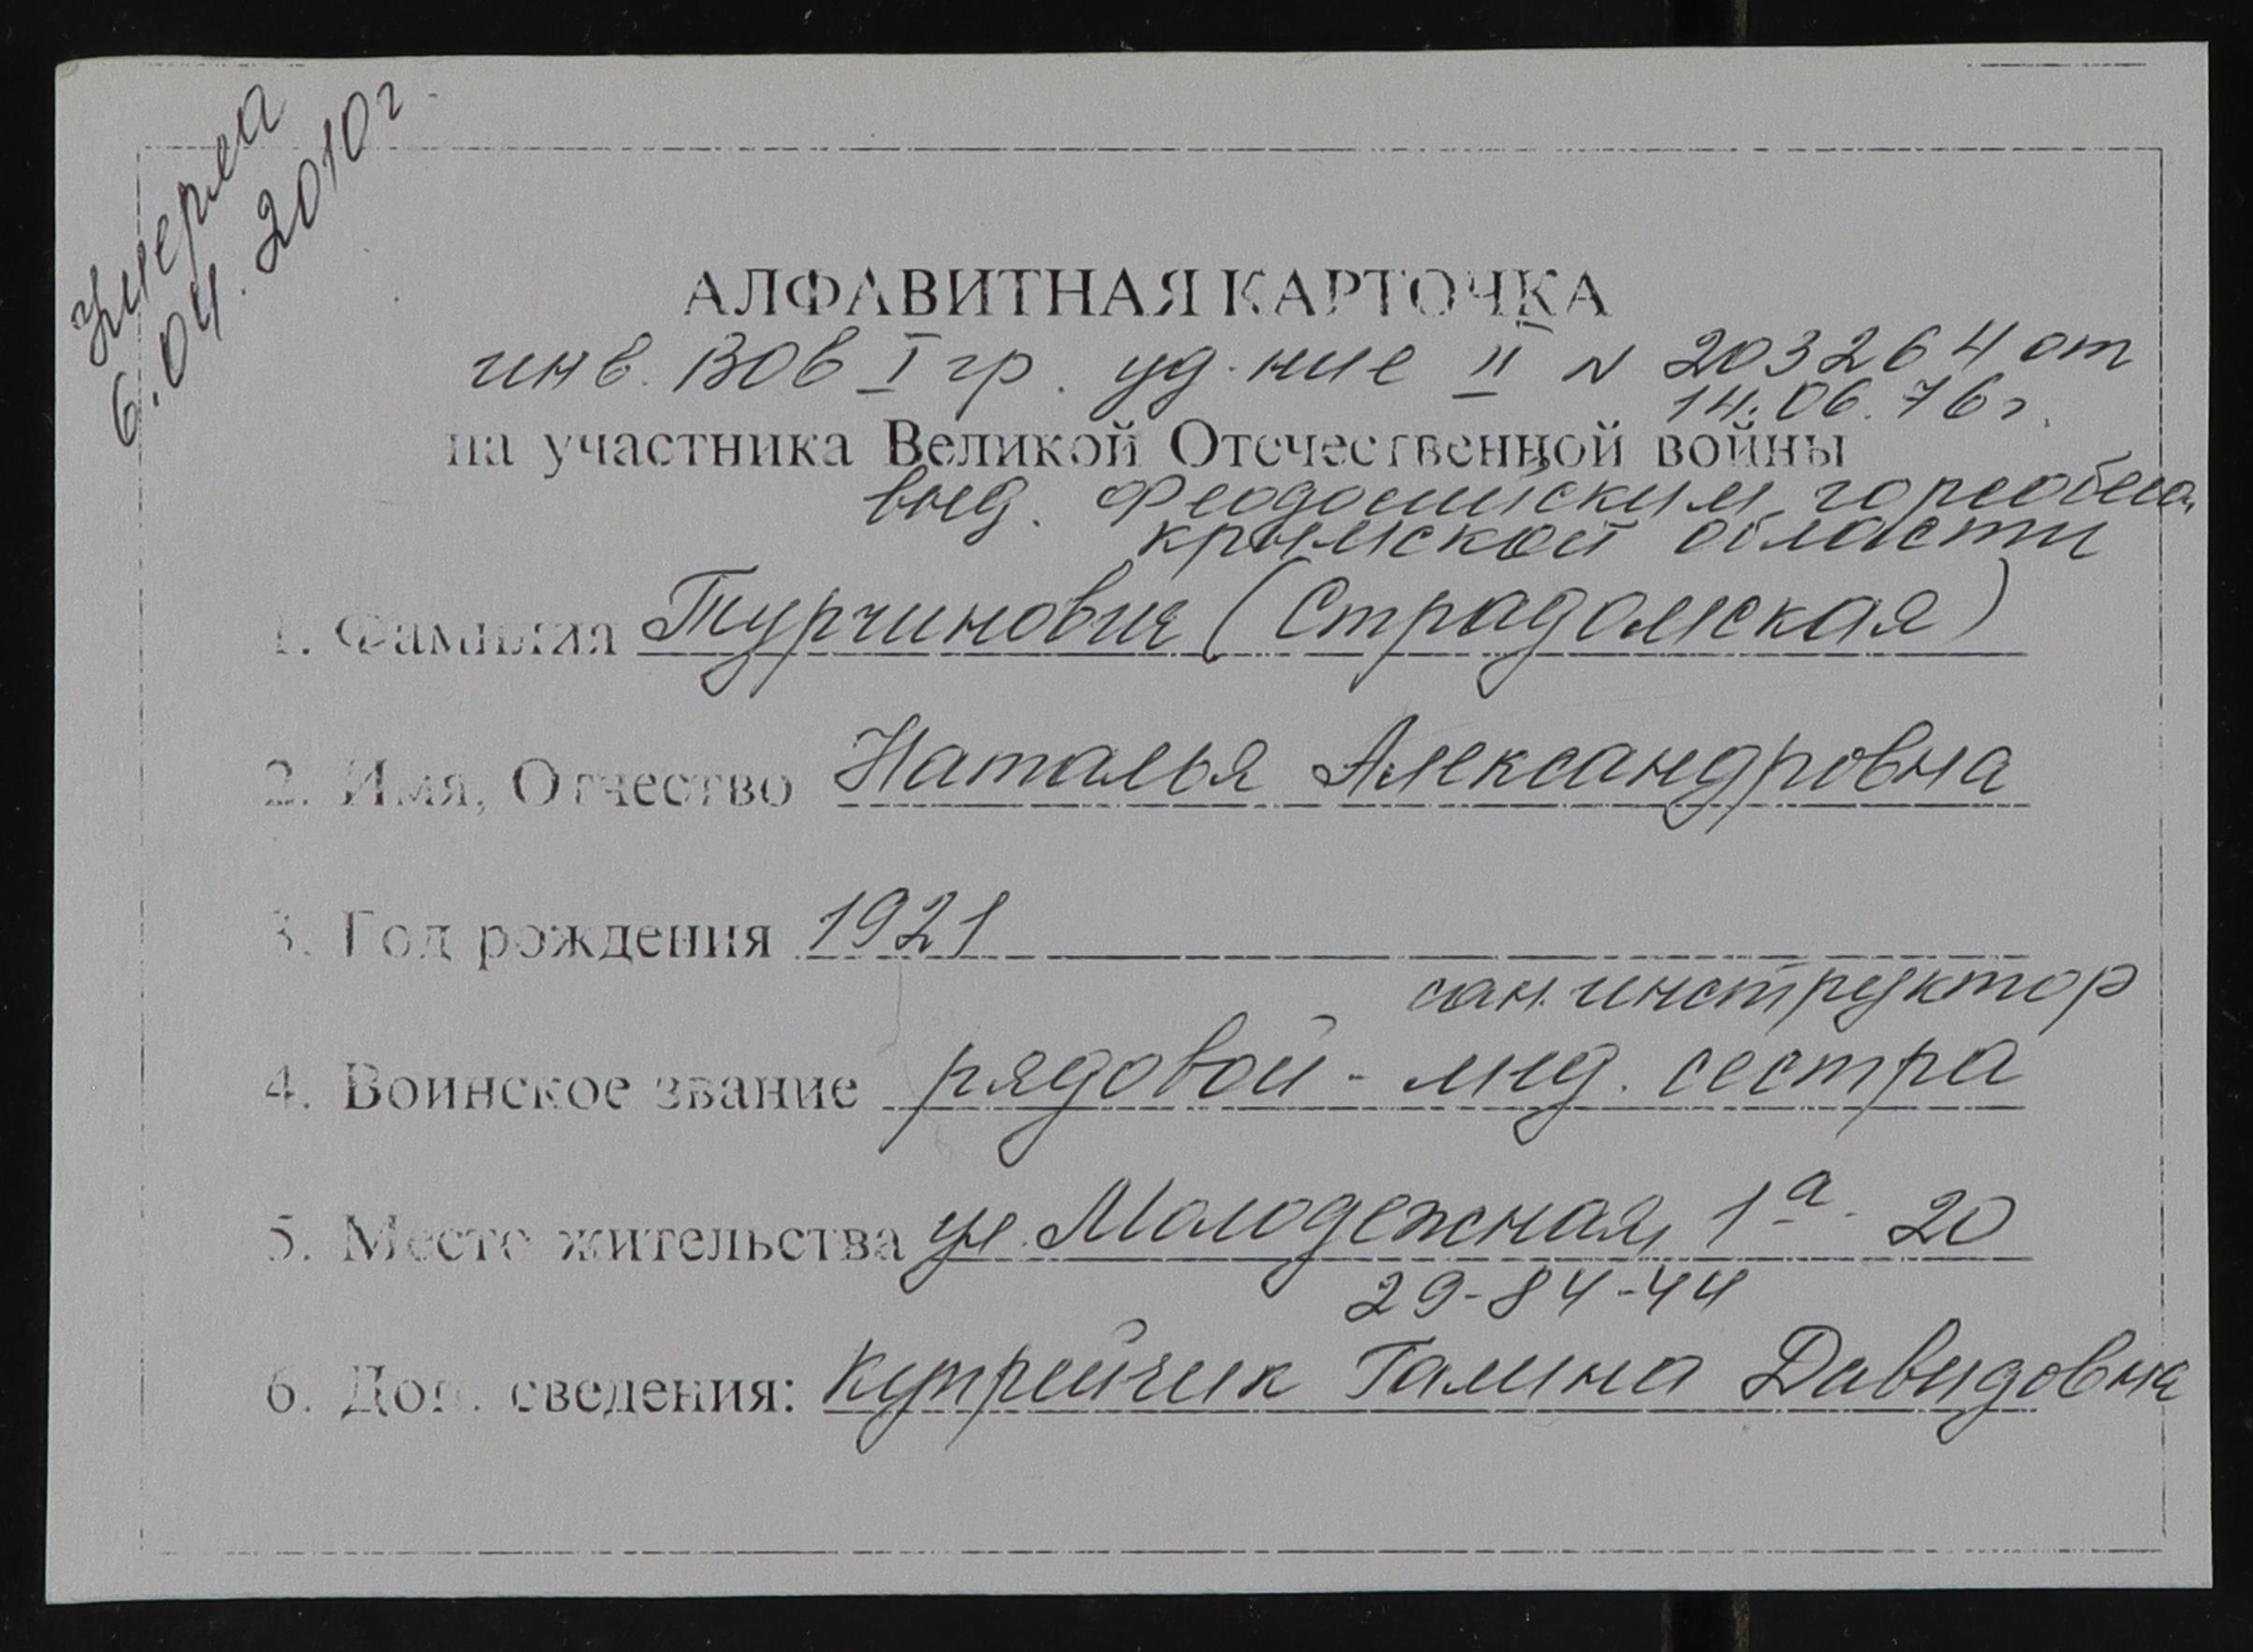 умерла
6.04.2010г
АЛФАВИТНАЯ КАРТОЧКА
инв. ВОВ I гр. уд-ние II N 203264 от
14.06.76г.
на участника Великой Отечественной войны
выд. Феодосийским горсобесом
крымской области
1. Фамилия Турчинович (Страдомская)
2. Имя, Отчество Наталья Александровна
3. Год рождения 1921
сан.инструктор
4. Воинское звание рядовой - мед. сестра
5. Место жительства ул. Молодежная, 1а - 20
29-84-44
6. Доп. сведения: Купрейчик Галина Давыдовна